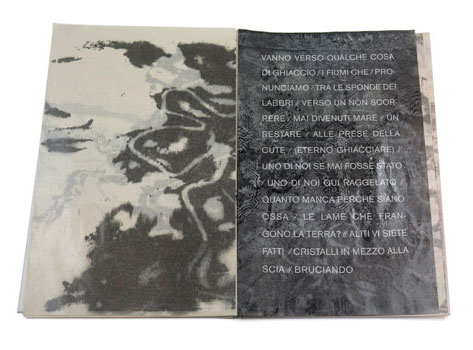 VANNO VERSO QUALCHE COSA
DI GHIACCIO / I FIUMI CHE / PRO-
NUNCIAMO / TRA LE SPONDE DEI
LABBRI / VERSO UN NON SCOR-
RERE / MAI DIVENUTI MARE / UN
RESTARE / ALLE PRESE DELLA
CUTE / (ETERNO GHIACCIARE) /
UNO DI NOI SE MAI FOSSE STATO
/ UNO DI NOI QUI RAGGELATO /
QUANTO MANCA PERCHÉ SIANO
OSSA / LE LAME CHE FRAN-
GONO LA TERRA? / ALITI VI SIETE
FATTI / CRISTALLI IN MEZZO ALLA
SCIA / BRUCIANDO